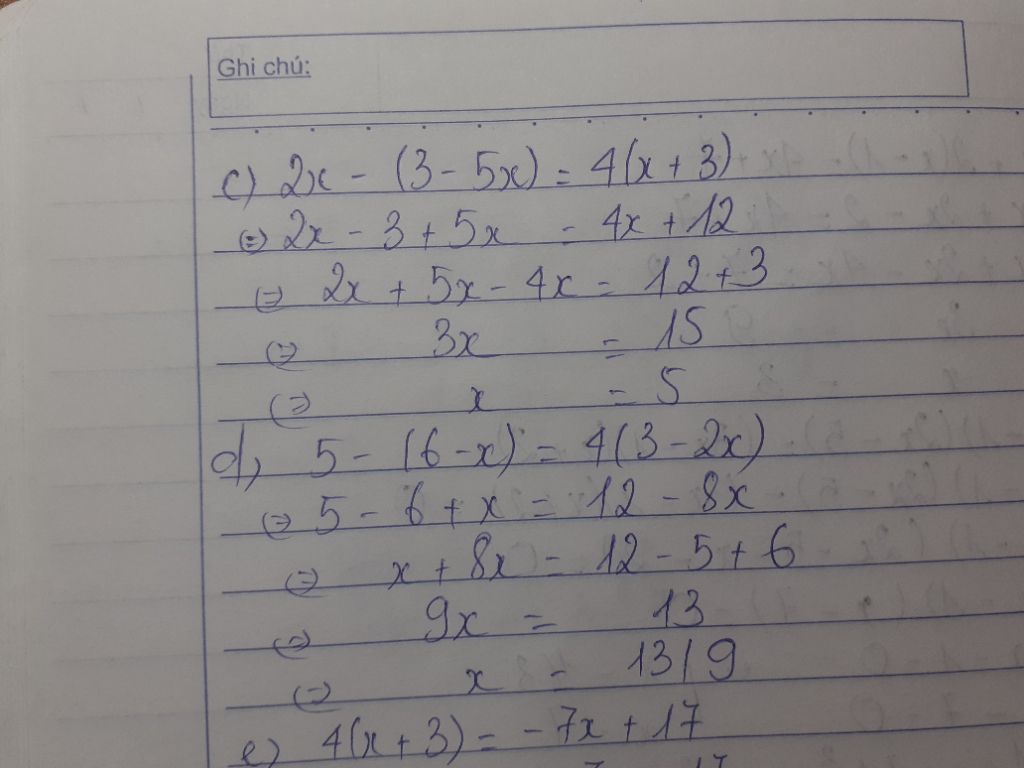 Ghi chú:
c) 2x - (3 - 5x) = 4(x + 3)
(=) 2x - 3 + 5x = 4x + 12
(=) 2x + 5x - 4x = 12 + 3
(=) 3x = 15
(=) x = 5
d, 5 - (6 - x) = 4(3 - 2x)
(=) 5 - 6 + x = 12 - 8x
(=) x + 8x = 12 - 5 + 6
(=) 9x = 13
(=) x = 13/9
e) 4(x + 3) = -7x + 17